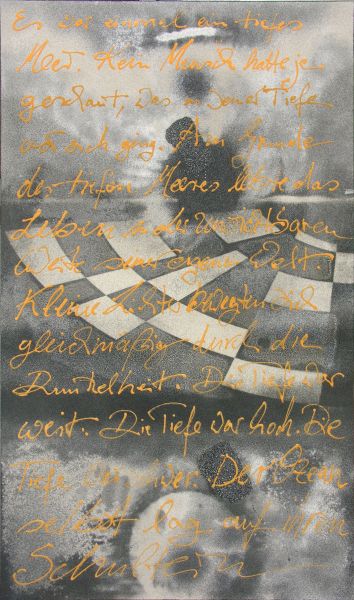 Es war einmal ein tiefes
Meer. Kein Mensch hatte je
geschaut, was in jener Tiefe
vor sich ging. Am Grunde
des tiefen Meeres lebte das
Leben in der unsichtbaren
Weite seiner eigenen Welt.
Kleine Lichter bewegten sich
gleichmäßig durch die
Dunkelheit. Die Tiefe war
weit. Die Tiefe war hoch. Die
Tiefe war schwer. Der Ozean
selbst lag auf ihren
Schultern